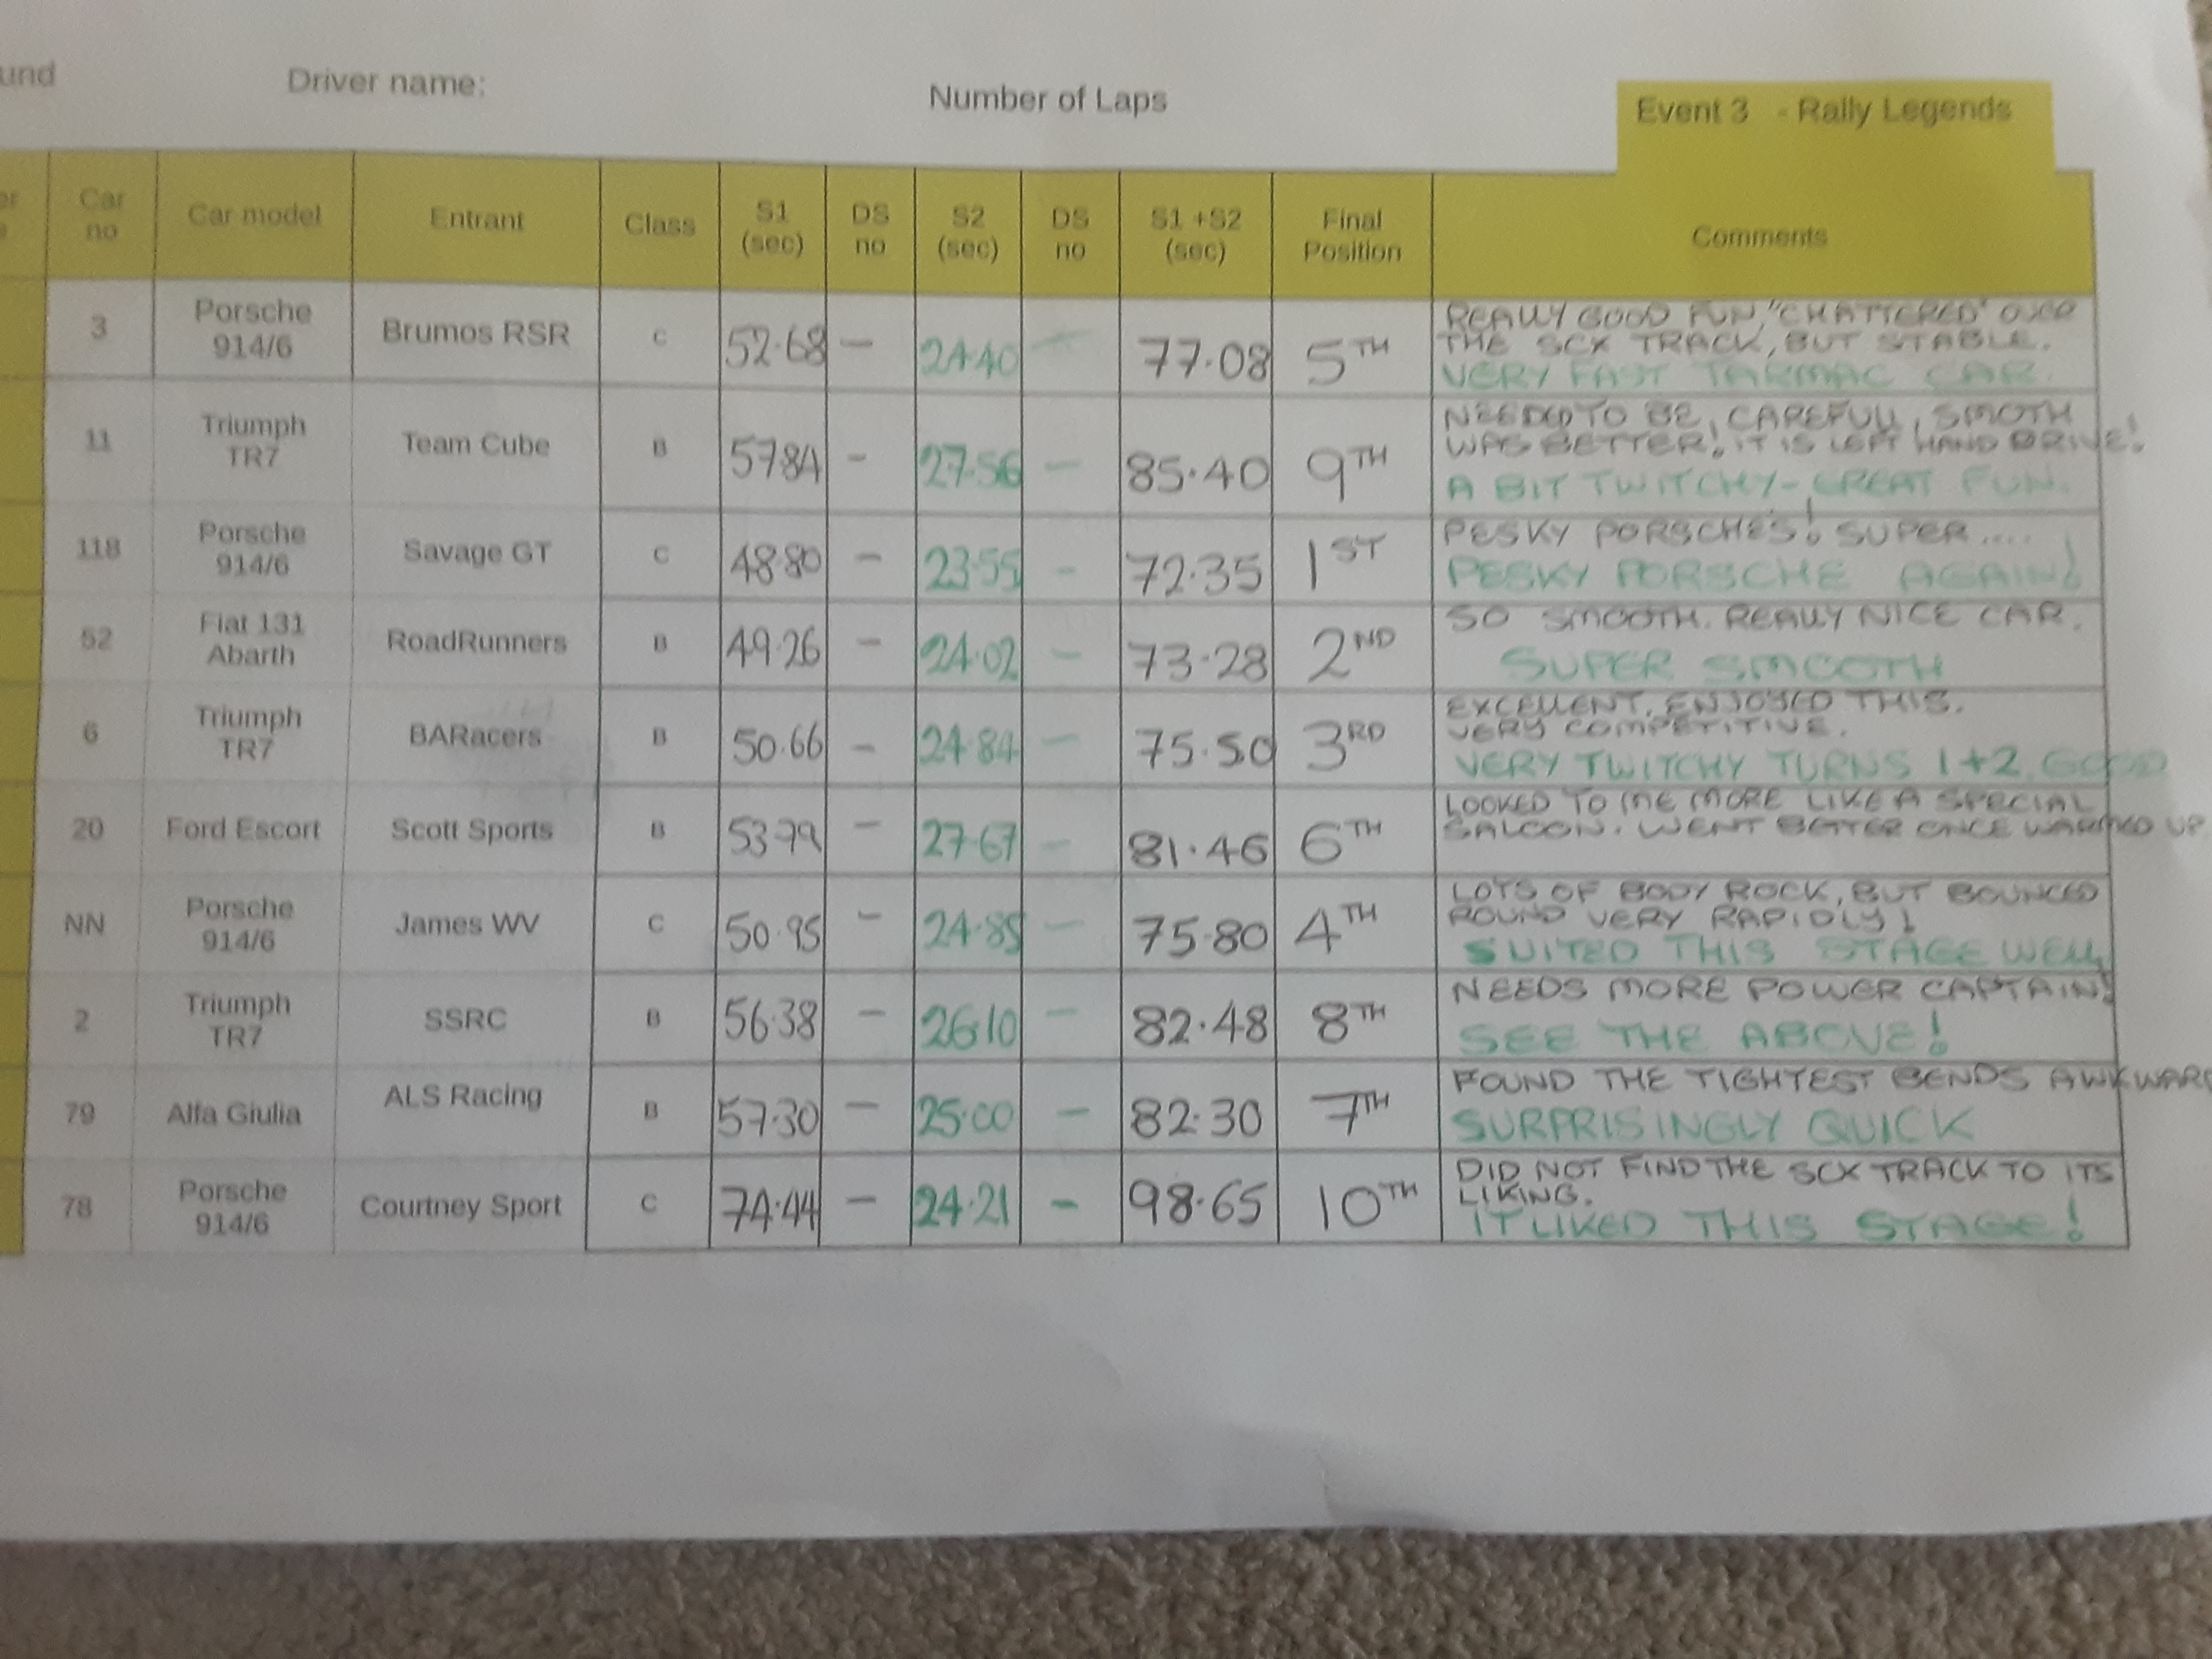 und Driver name: Number of Laps Event 3 - Rally Legends
er Car no Car model Entrant Class S1 (sec) DS no S2 (sec) DS no S1 +S2 (sec) Final Position Comments
3 Porsche 914/6 Brumos RSR C 52.68 - 24.40 - 77.08 5TH
REALLY GOOD FUN, "CHATTERED" OVER
THE SCX TRACK, BUT STABLE.
VERY FAST TARMAC CAR.
11 Triumph TR7 Team Cube B 57.84 - 27.56 - 85.40 9TH
NEEDED TO BE CAREFULL, SMOTH
WAS BETTER! IT IS LEFT HAND DRIVE!
A BIT TWITCHY - GREAT FUN.
118 Porsche 914/6 Savage GT C 48.80 - 23.55 - 72.35 1ST
PESKY PORSCHES! SUPER....
PESKY PORSCHE AGAIN!
52 Fiat 131 Abarth RoadRunners B 49.26 - 24.02 - 73.28 2ND
SO SMOOTH. REALLY NICE CAR.
SUPER SMOOTH
6 Triumph TR7 BARacers B 50.66 - 24.84 - 75.50 3RD
EXCELLENT. ENJOYED THIS.
VERY COMPETITIVE.
VERY TWITCHY TURNS 1+2. GOOD
20 Ford Escort Scott Sports B 53.79 - 27.67 - 81.46 6TH
LOOKED TO ME MORE LIKE A SPECIAL
SALOON. WENT BETTER ONCE WARMED UP
NN Porsche 914/6 James WV C 50.95 - 24.85 - 75.80 4TH
LOTS OF BODY ROCK, BUT BOUNCED
ROUND VERY RAPIDLY!
SUITED THIS STAGE WELL
2 Triumph TR7 SSRC B 56.38 - 26.10 - 82.48 8TH
NEEDS MORE POWER CAPTAIN!
SEE THE ABOVE!
79 Alfa Giulia ALS Racing B 57.30 - 25.00 - 82.30 7TH
FOUND THE TIGHTEST BENDS AWKWARD
SURPRISINGLY QUICK
78 Porsche 914/6 Courtney Sport C 74.44 - 24.21 - 98.65 10TH
DID NOT FIND THE SCX TRACK TO ITS
LIKING.
IT LIKED THIS STAGE!